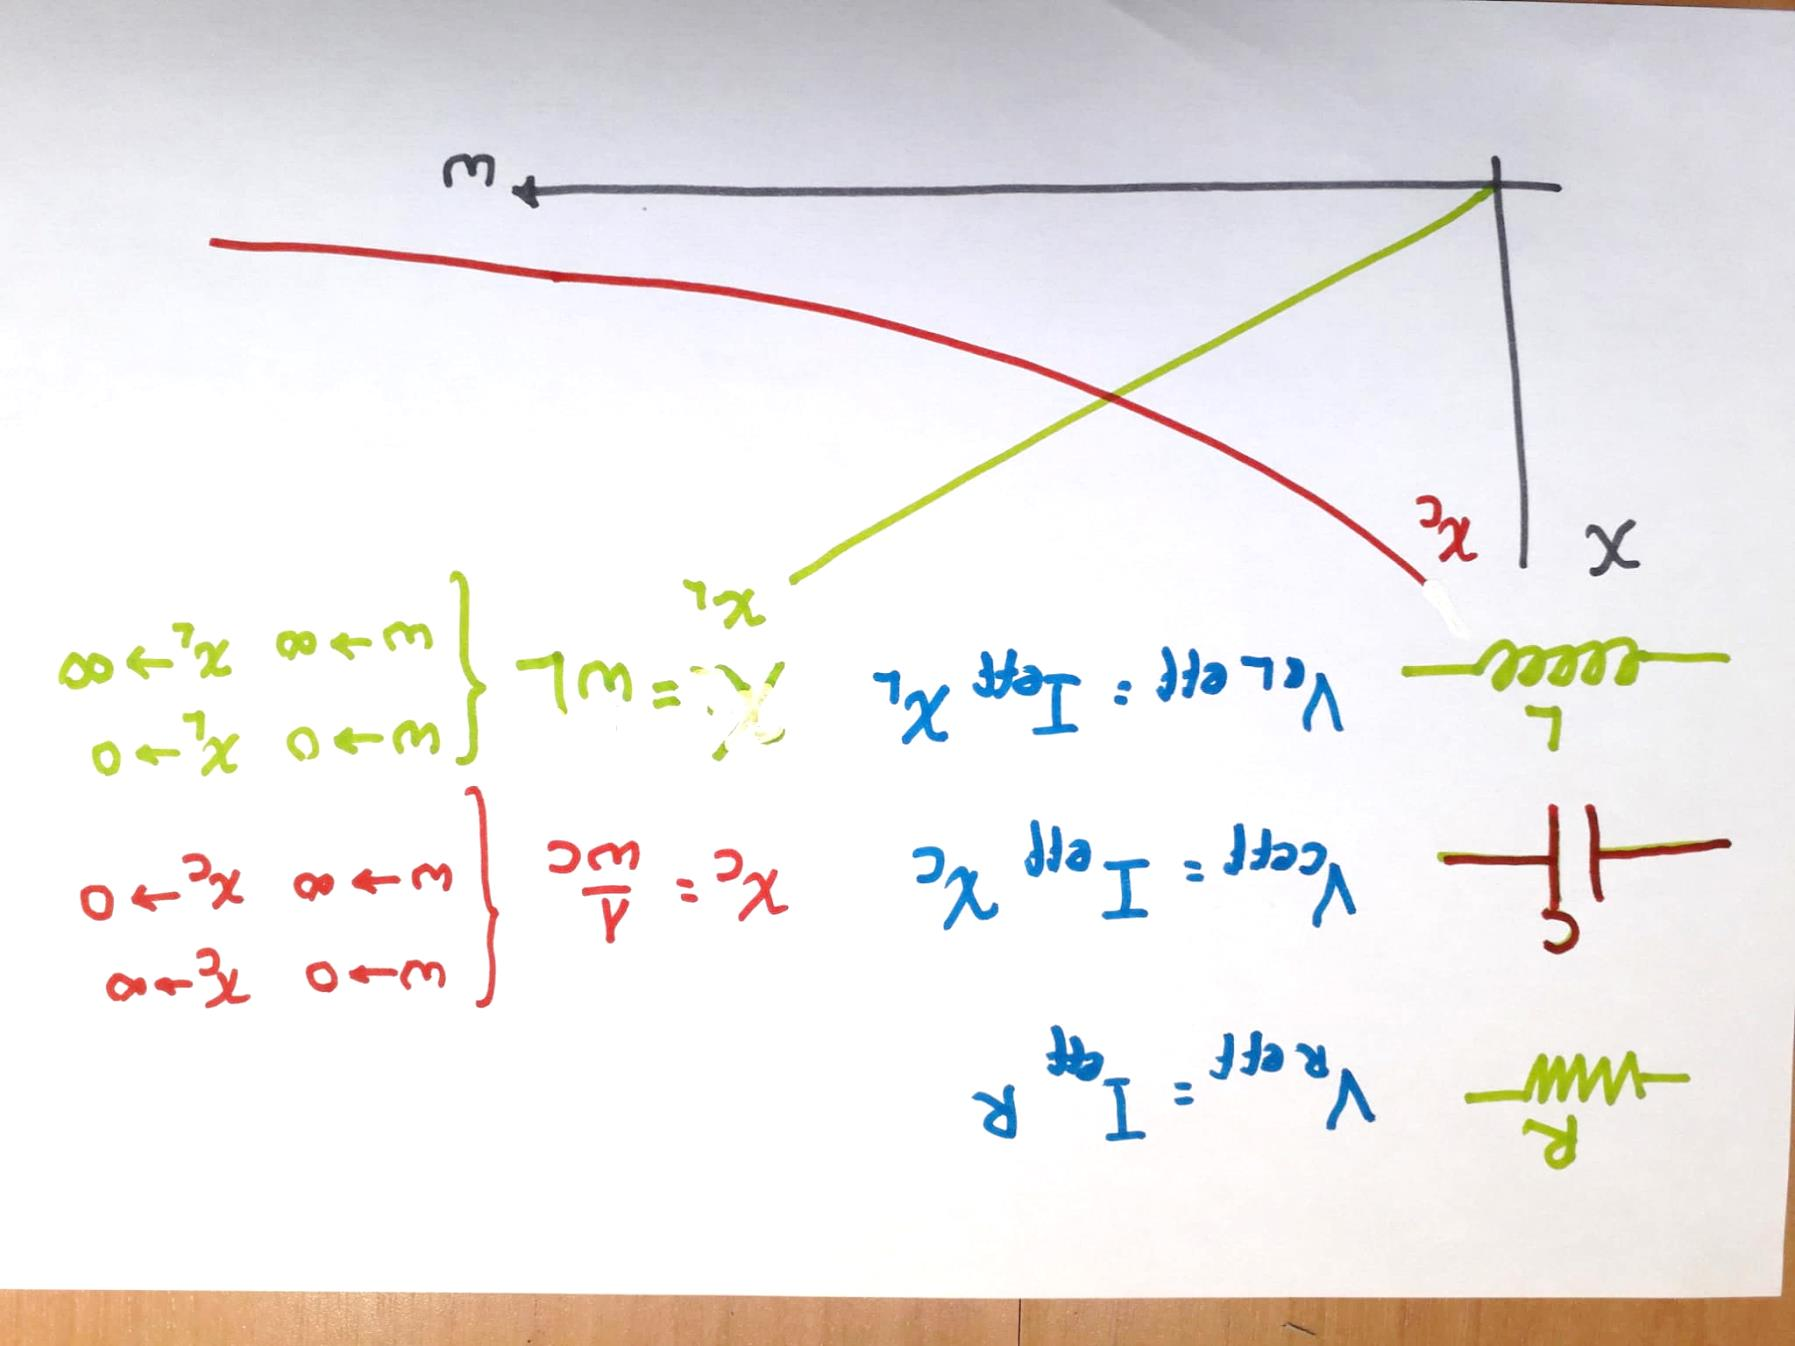 R
V_R eff = I_eff R
ω → 0 X_C → ∞
C
V_C eff = I_eff X_C
X_C = 1/ωC
ω → ∞ X_C → 0
L
V_eL eff = I_eff X_L
X_L = ωL
ω → 0 X_L → 0
ω → ∞ X_L → ∞
X
X_C
X_L
ω